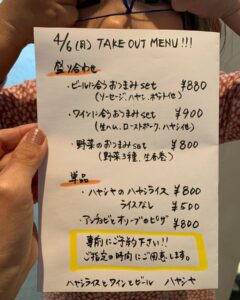 4/6(月) TAKE OUT MENU!!!
盛り合わせ
・ビールに合うおつまみset ¥880
(ソーセージ、ハヤシ、ポテト他)
・ワインに合うおつまみset ¥900
(生ハム、ローストポーク、ハヤシ他)
・野菜のおつまみset ¥800
(野菜3種、生春巻)
単品
・ハヤシヤのハヤシライス ¥800
ライスなし ¥500
・アンチョビとオリーブのピザ ¥800
事前にご予約下さい!!
ご指定の時間にご用意します。
ハヤシライスとワインとビール ハヤシヤ